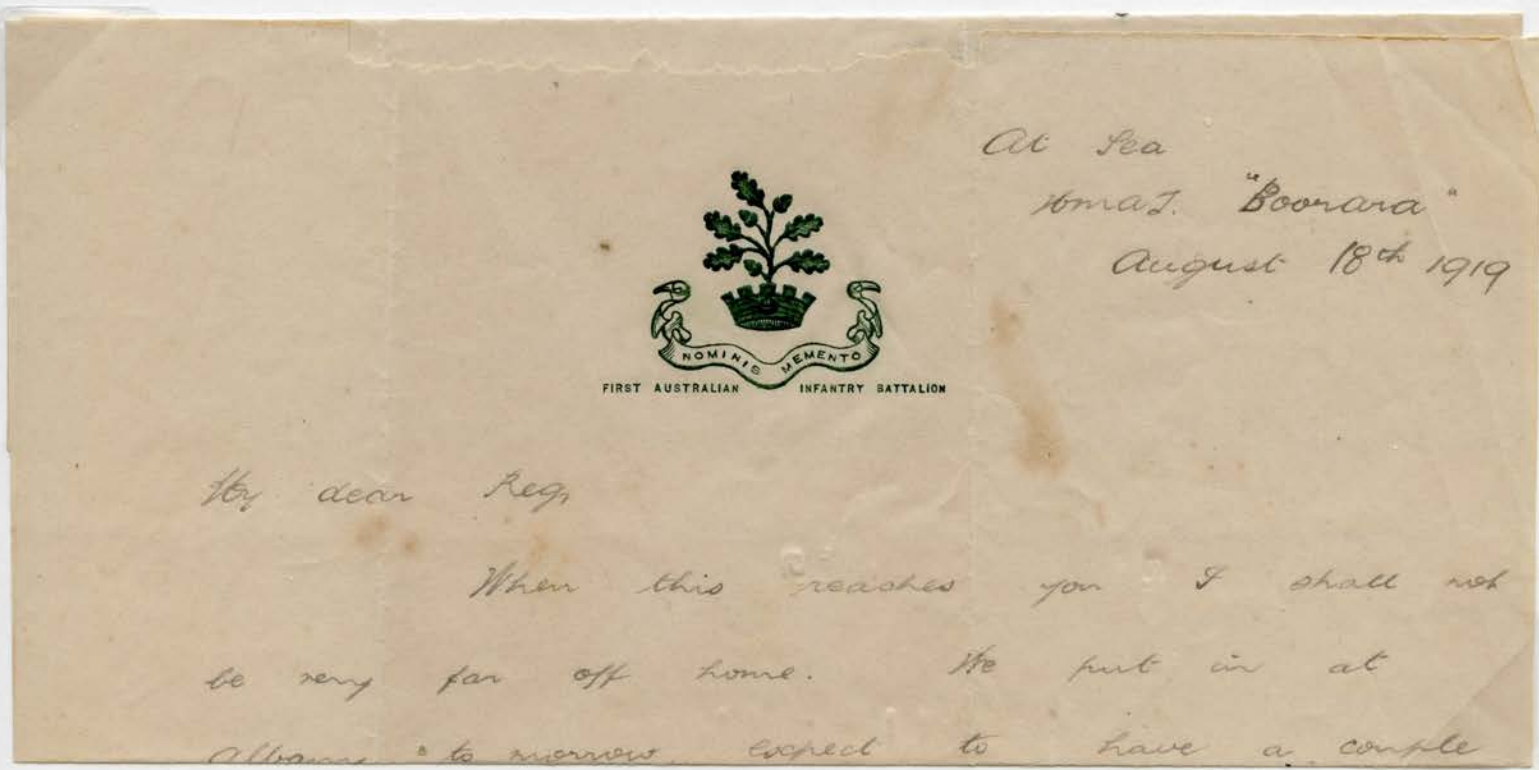 At Sea
HMAT. "Boorara"
August 18th 1919
NOMINIS MEMENTO
FIRST AUSTRALIAN INFANTRY BATTALION
My dear Reg,
When this reaches you I shall not
be very far off home. We put in at
Albany to morrow expect to have a couple